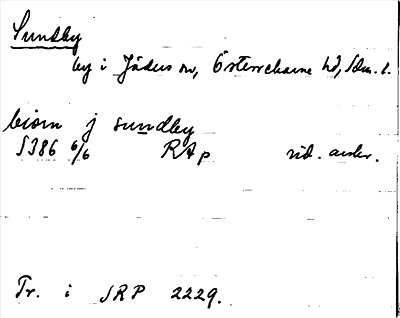 Sundby
by i Jäders sn, Österrekarne hd, Sdm. l.
biorn j sundby
1386 6/6 RAp vid. avskr.
Tr. i SRP 2229.